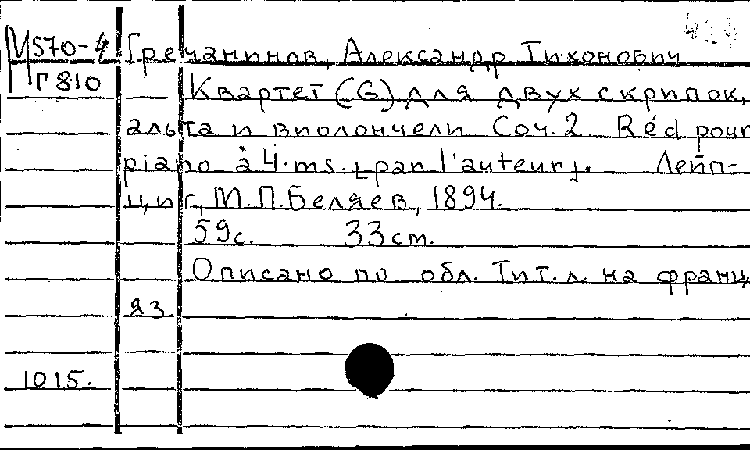 М570-4 Гречанинов, Александр Тихонович
Г810
Квартет (G) для двух скрипок,
альта и виолончели Соч. 2. Réd pour
piano à 4. ms. [par l'auteur]. Лейп-
циг, М.П.Беляев, 1894.
59с. 33cm.
Описано по обл. Тит. л. на франц.
яз.
1015.